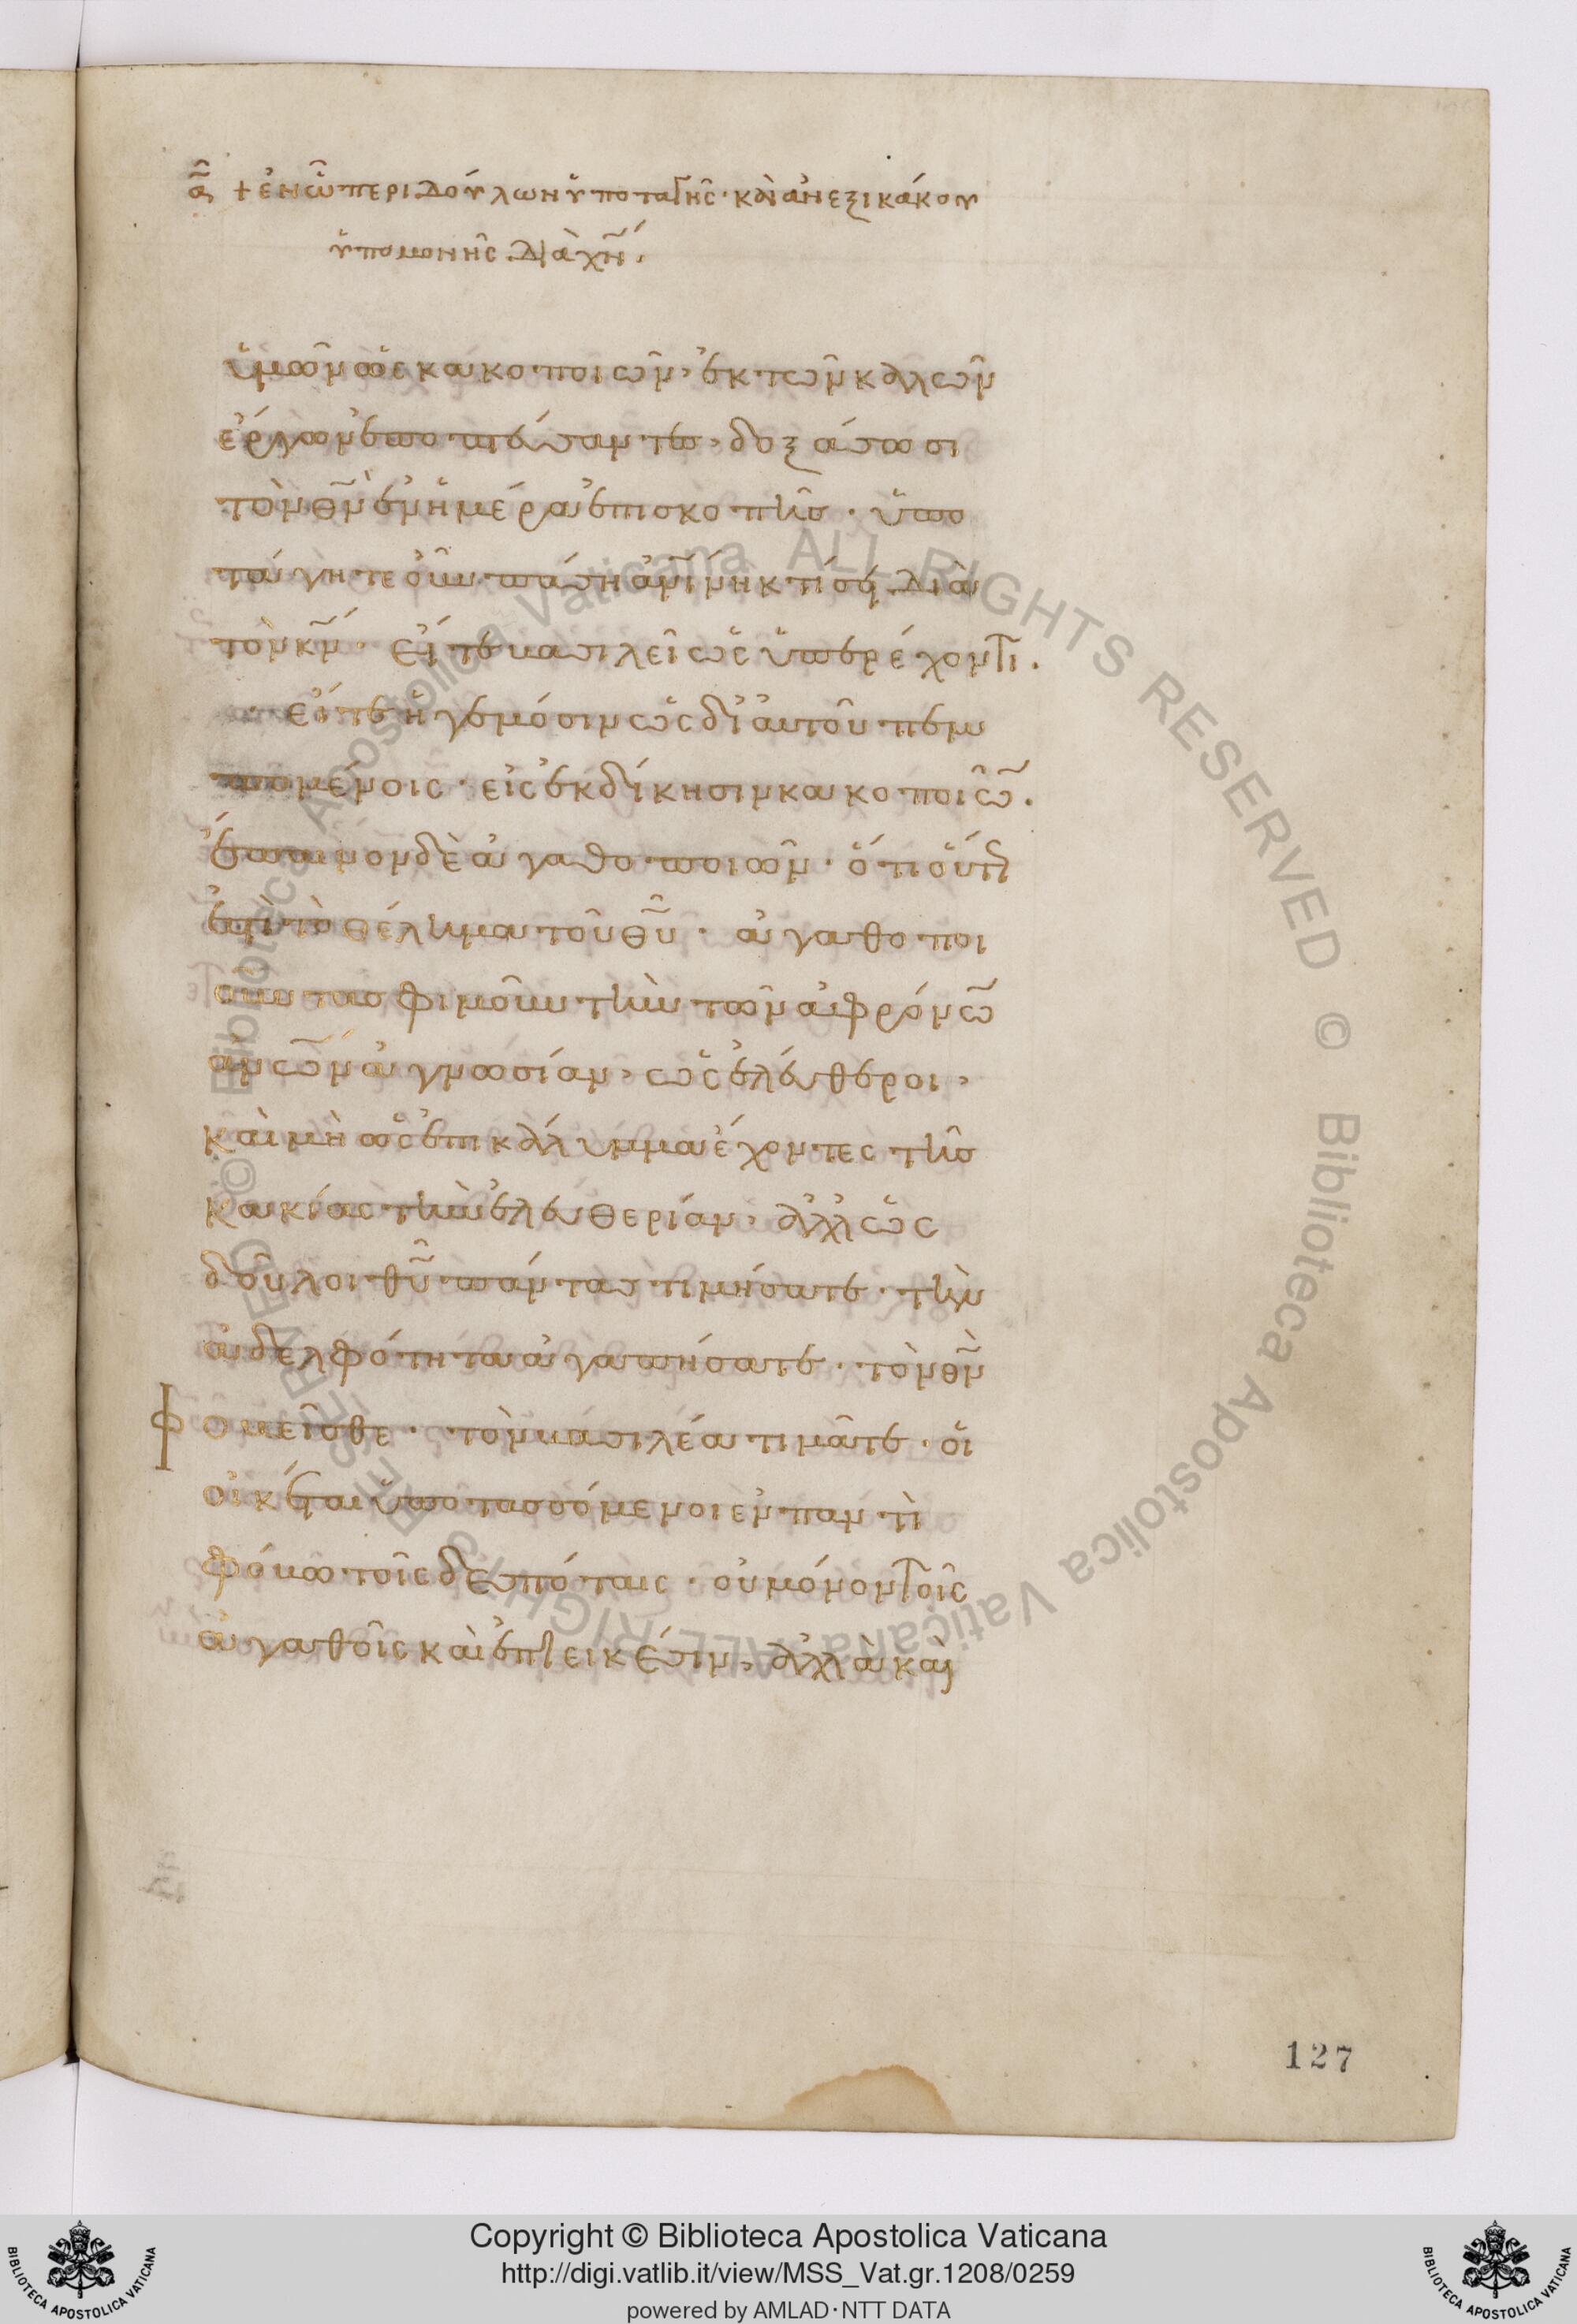 ᾱ + ἐν ὧ περι δούλων ὑποταγῆς· καὶ ἀνεξικάκου
ὑπομονῆς διὰ χν̅·
ὑμῶν ὡς κακοποιῶν, ἐκ τῶν καλῶν
ἔργων ἐποπτεύσαντες, δοξάσωσι
τὸν θν̅ ἐν ἡμέρα ἐπισκοπῆς· ὑπο
τάγητε οὖν πάση ἀνί̅νη κτίσει διὰ
τὸν κν̅· εἴτε βασιλεῖ ὡς ὑπερέχοντι·
εἴτε ἡγεμόσιν ὡς δι' αὐτοῦ πεμ
πομένοις· εἰς ἐκδίκησιν κακοποιῶν·
ἔπαινον δὲ ἀγαθοποιῶν· ὅτι οὕτως
ἐστὶ τὸ θέλημα τοῦ θυ̅· ἀγαθοποι
οῦντας φιμοῦν τὴν τῶν ἀφρόνων
ἀν̅ων ἀγνωσίαν, ὡς ἐλεύθεροι,
καὶ μὴ ὡς ἐπικάλυμμα ἔχοντες τῆς
κακίας τὴν ἐλευθερίαν, ἀλλ' ὡς
δοῦλοι θυ̅ πάντας τιμήσατε· τὴν
ἀδελφότητα ἀγαπήσατε· τὸν θν̅
φοβεῖσθε· τὸν βασιλέα τιμᾶτε· οἱ
οἰκέται ὑποτασσόμενοι ἐν παντὶ
φόβω τοῖς δεσπόταις· οὐ μόνον τοῖς
ἀγαθοῖς καὶ ἐπιεικέσιν, ἀλλὰ καὶ
127
© Biblioteca Apostolica Vaticana ALL RIGHTS RESERVED © Biblioteca Apostolica Vaticana ALL RIGHTS RESERVED
Copyright © Biblioteca Apostolica Vaticana
http://digi.vatlib.it/view/MSS_Vat.gr.1208/0259
powered by AMLAD·NTT DATA
BIBLIOTECA APOSTOLICA VATICANA
BIBLIOTECA APOSTOLICA VATICANA